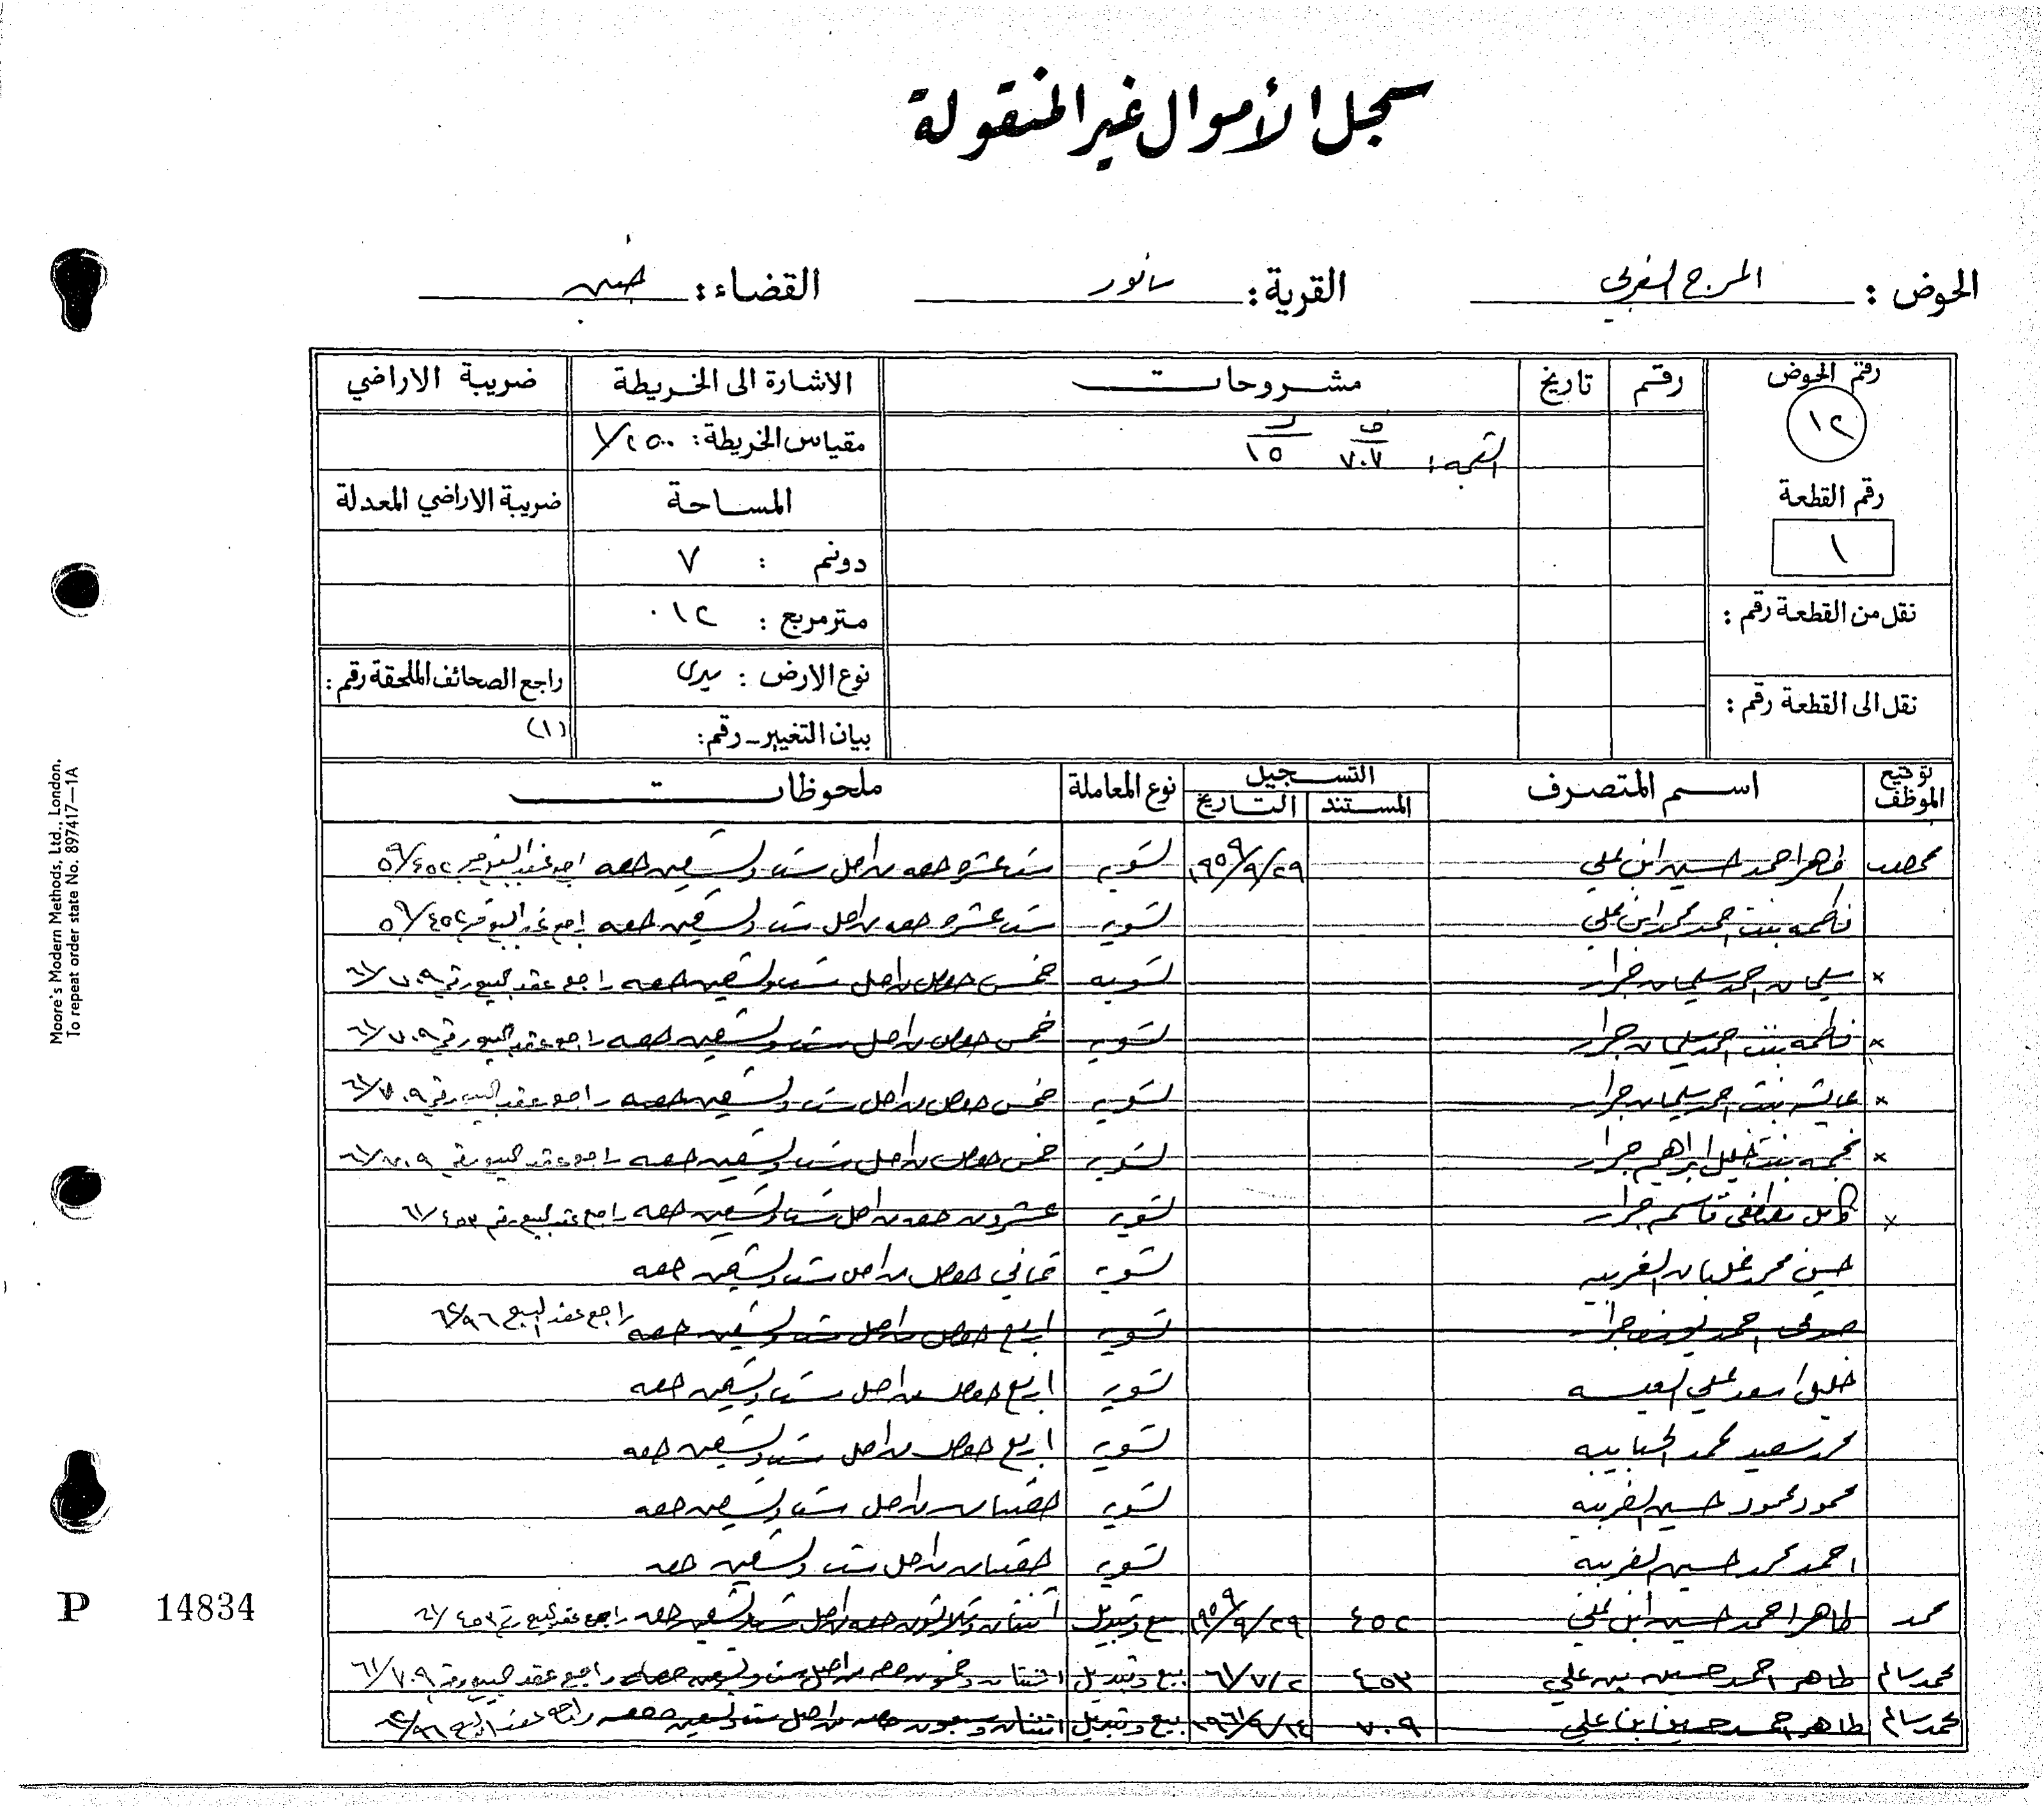 سجل الأموال غير المنقولة
الحوض : المرج الغربي القرية : سانور القضاء : جنين
رقم الحوض رقم تاريخ مشروحات الاشارة الى الخريطة ضريبة الاراضي
١٢ ٧٠٧ ١٥ مقياس الخريطة : ١/٢٥٠٠
رقم القطعة المساحة ضريبة الاراضي المعدلة
١ دونم : ٧
نقل من القطعة رقم : متر مربع : ٠١٢
نوع الارض : ميري راجع الصحائف الملحقة رقم :
نقل الى القطعة رقم : بيان التغيير - رقم : (١)
توقيع الموظف اسم المتصرف التسجيل المستند التاريخ نوع المعاملة ملحوظات
طاهر احمد حسين ابن علي ١٩٥٩/٩/٢٩ تسويه ست عشرة حصه من اصل ست وتسعين حصه راجع عقد البيع رقم ٥٩/٤٥٢
فاطمه بنت احمد محمد ابن علي تسويه ست عشرة حصه من اصل ست وتسعين حصه راجع عقد البيع رقم ٥٩/٤٥٢
× سليمان احمد سليمان جرار تسويه خمس حصص من اصل ست وتسعين حصه راجع عقد البيع رقم ٦١/٧٠٩
× فاطمه بنت احمد سليمان جرار تسويه خمس حصص من اصل ست وتسعين حصه راجع عقد البيع رقم ٦١/٧٠٩
× عائشه بنت احمد سليمان جرار تسويه خمس حصص من اصل ست وتسعين حصه راجع عقد البيع رقم ٦١/٧٠٩
× نجمه بنت خليل ابراهيم جرار تسويه خمس حصص من اصل ست وتسعين حصه راجع عقد البيع رقم ٦١/٧٠٩
× كامل مصطفى قاسم جرار تسويه عشرون حصه من اصل ست وتسعين حصه راجع عقد البيع رقم ٦١/٤٥٣
حسن محمد الغربيه تسويه ثماني حصص من اصل ست وتسعين حصه
احمد جرار تسويه اربع حصص من اصل ست وتسعين حصه راجع عقد البيع ٦٢/٩٦
خليل اسعد علي العيسه تسويه اربع حصص من اصل ست وتسعين حصه
محمد سعيد محمد الحبايبه تسويه اربع حصص من اصل ست وتسعين حصه
محمود محمود حسين الغربيه تسويه حصتان من اصل ست وتسعين حصه
احمد محمد حسين الغربيه تسويه حصتان من اصل ست وتسعين حصه
محمد طاهر احمد حسين ابن علي ٤٥٢ ١٩٥٩/٩/٢٩ بيع وتبديل اثنتان وثلاثون حصه من اصل ست وتسعين حصه راجع عقد البيع رقم ٦١/٤٥٣
محمد سالم طاهر احمد حسين بن علي ٤٥٣ ٦١/٧/٢ بيع وتبديل اثنتان وخمسون حصه من اصل ست وتسعين حصه راجع عقد البيع رقم ٦١/٧٠٩
محمد سالم طاهر احمد حسين ابن علي ٧٠٩ ١٩٦١/٩/١٤ بيع وتبديل اثنتان وسبعون حصه من اصل ست وتسعين حصه راجع عقد البيع ٦٢/٩٦
Moore's Modern Methods, Ltd., London.
To repeat order state No. 897417—1A
P 14834